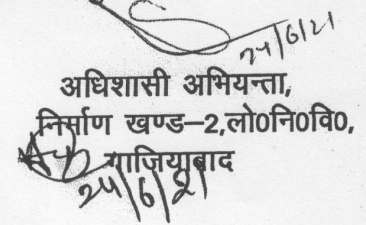 24/6/21
अधिशासी अभियन्ता,
निर्माण खण्ड-2,लो0नि0वि0,
गाजियाबाद
24/6/21